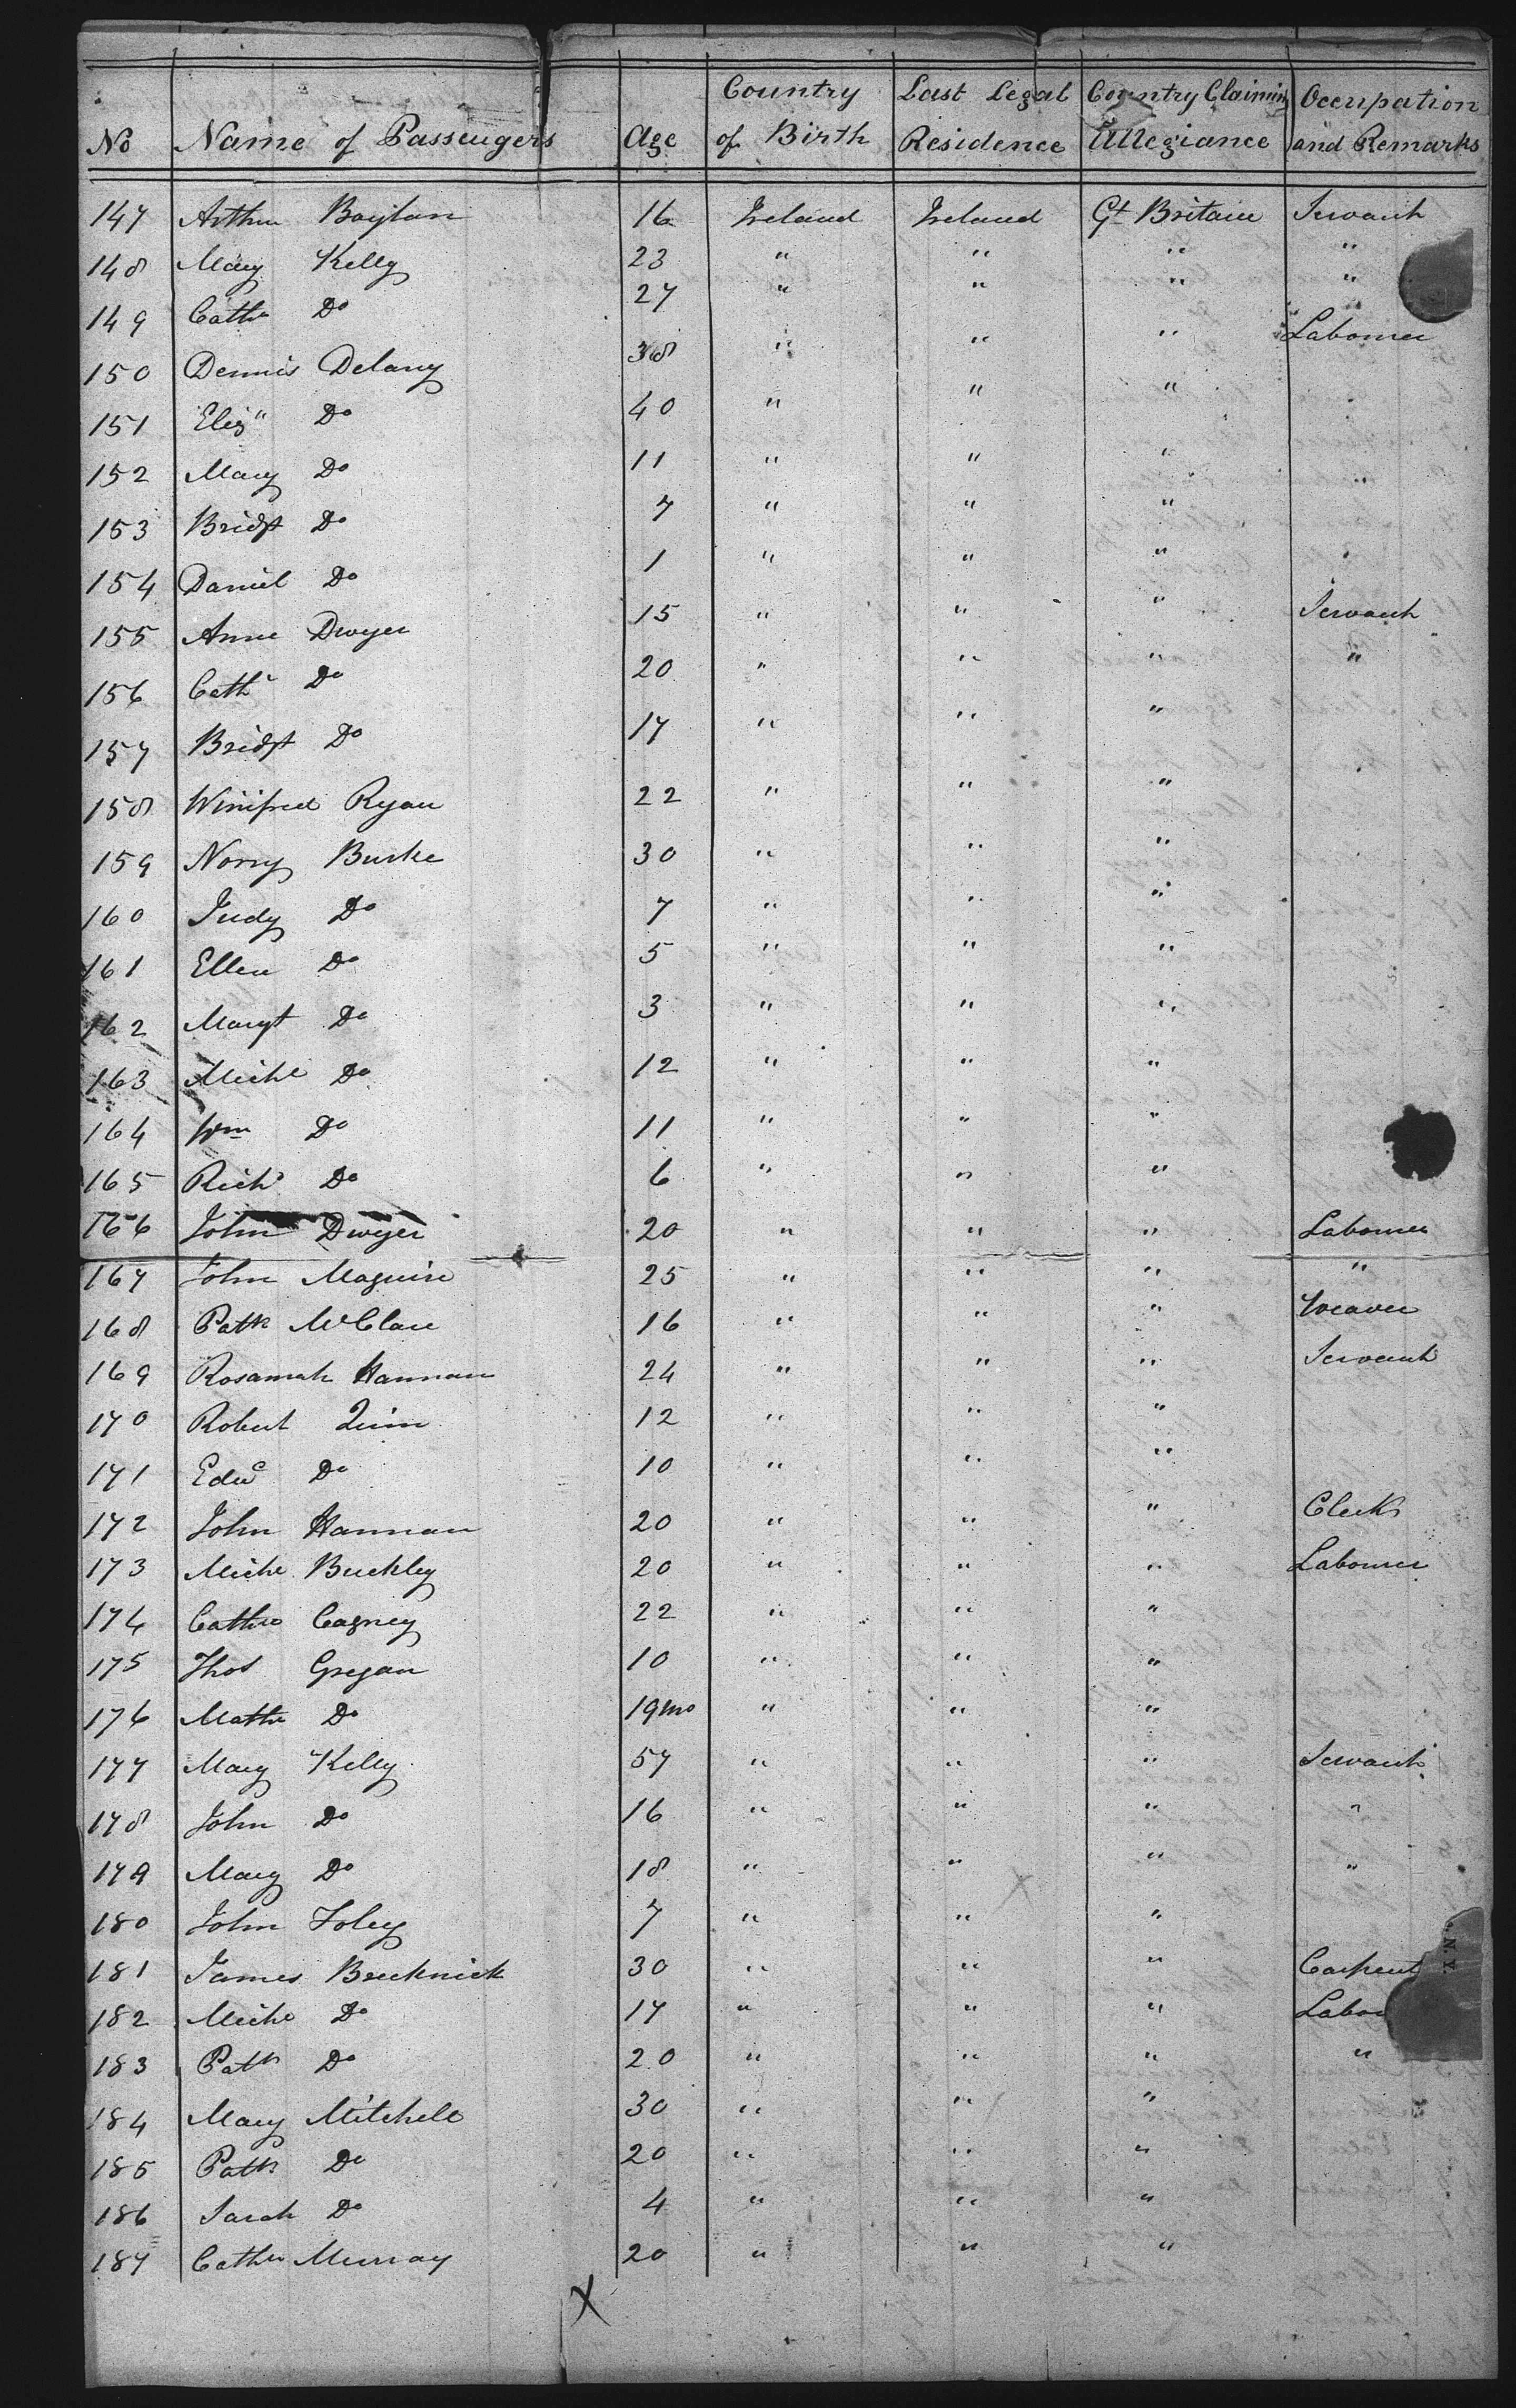 No Name of Passengers Age Country of Birth Last Legal Residence Country Claiming Allegiance Occupation and Remarks
147 Arthur Boylan 16 Ireland Ireland Gt Britain Servant
148 Mary Kelly 23 " " " "
149 Cathe Do 27 " " " "
150 Dennis Delany 38 " " " Labourer
151 Eliz" Do 40 " " "
152 Mary Do 11 " " " "
153 Bridgt Do 7 " " "
154 Daniel Do 1 " " "
155 Anne Dwyer 15 " " " Servant
156 Cath Do 20 " " " "
157 Bridgt Do 17 " " "
158 Winifred Ryan 22 " " "
159 Norry Burke 30 " " "
160 Judy Do 7 " " "
161 Ellen Do 5 " " "
162 Margt Do 3 " " "
163 Michl Do 12 " " "
164 Wm Do 11 " " "
165 Richd Do 6 " " "
166 John Dwyer 20 " " " Labourer
167 John Maguire 25 " " " "
168 Patk McClare 16 " " " Weaver
169 Rosannah Hannan 24 " " " Servant
170 Robert Quin 12 " " "
171 Edwd Do 10 " " "
172 John Hannan 20 " " " Clerk
173 Michl Buckley 20 " " " Labourer
174 Cathe Cagney 22 " " "
175 Thos Gregan 10 " " "
176 Mathw Do 19mo " " "
177 Mary Kelly 57 " " " Servant
178 John Do 16 " " " "
179 Mary Do 18 " " " "
180 John Foley 7 " " "
181 James Brecknick 30 " " " Carpent
182 Michl Do 17 " " " Labou
183 Patk Do 20 " " " "
184 Mary Mitchell 30 " " "
185 Patk Do 20 " " "
186 Sarah Do 4 " " "
187 Cathe Murray 20 " " "
X